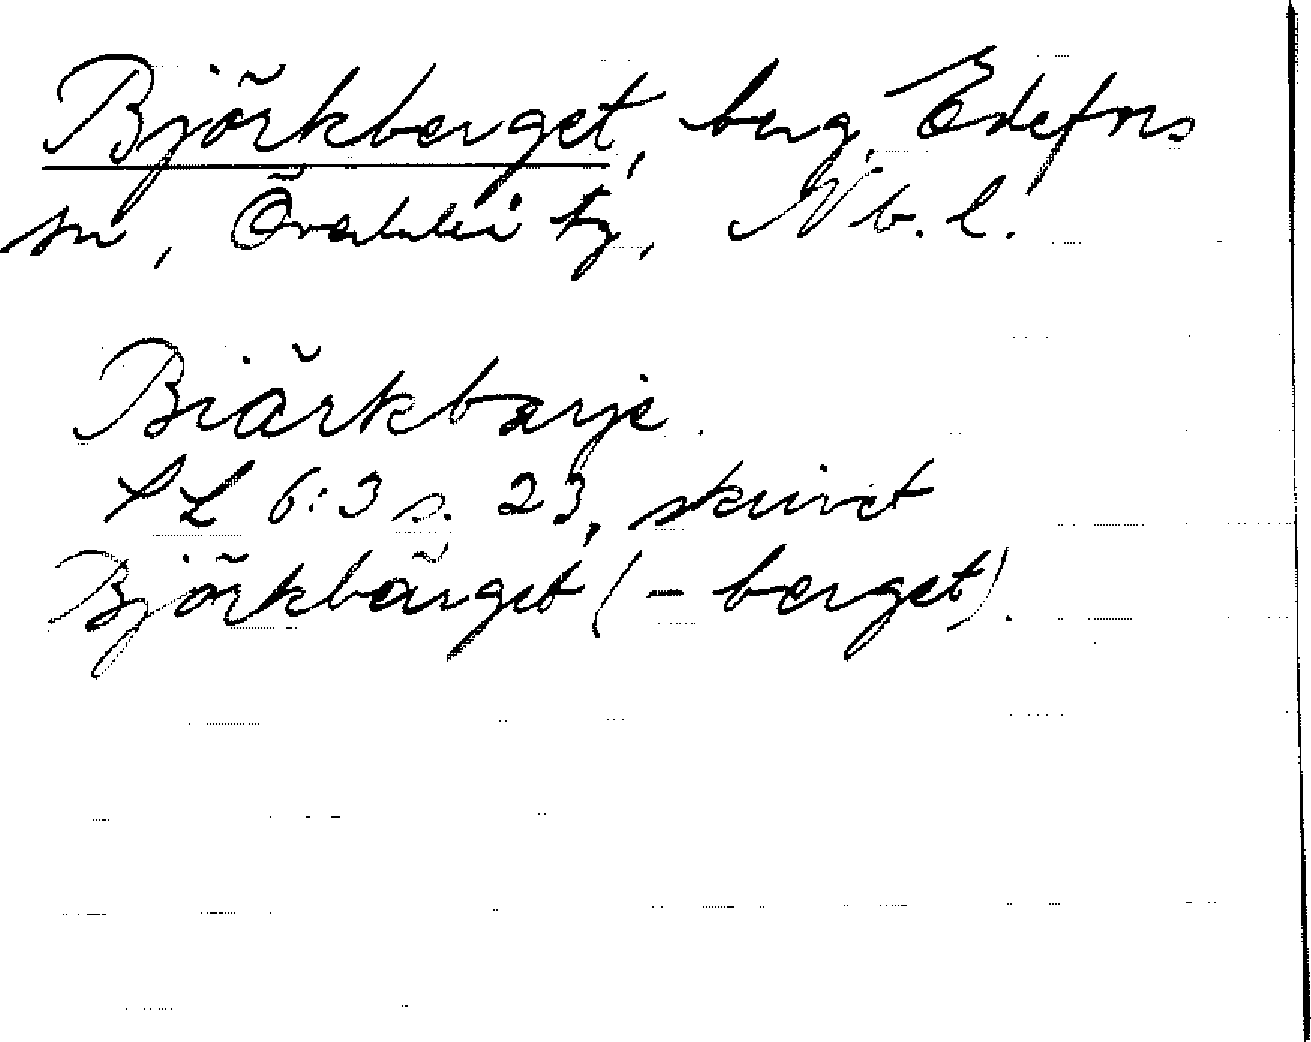 Björkberget, berg, Edefors
sn, Överluleå tg, Nb. l.
Biärkbarje.
SL 6:3 s. 23, skrivet
Björkbärget (-berget).